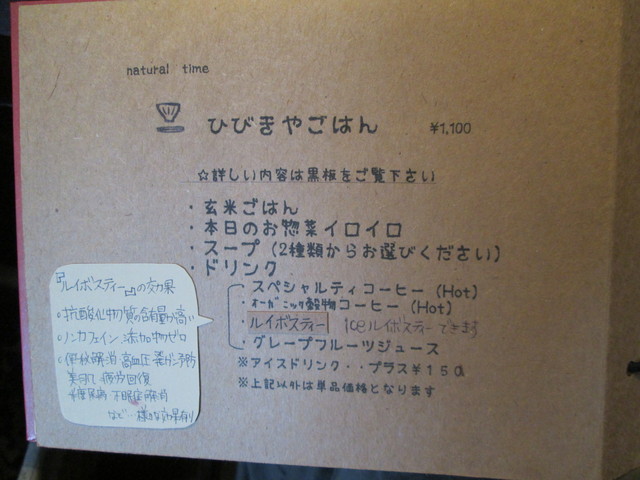 natural time
ひびきやごはん ¥1,100
☆詳しい内容は黒板をご覧下さい
・玄米ごはん
・本日のお惣菜イロイロ
・スープ（2種類からお選びください）
・ドリンク
・スペシャルティコーヒー（Hot）
・オーガニック穀物コーヒー（Hot）
・ルイボスティー Iceルイボスティーできます
・グレープフルーツジュース
※アイスドリンク・・プラス¥150
※上記以外は単品価格となります
『ルイボスティー』の効果
○抗酸化物質の含有量が高い
○ノンカフェイン 添加物ゼロ
○便秘解消 高血圧 予防
美肌 疲労回復
糖尿病 不眠症解消
など…様々な効果有り